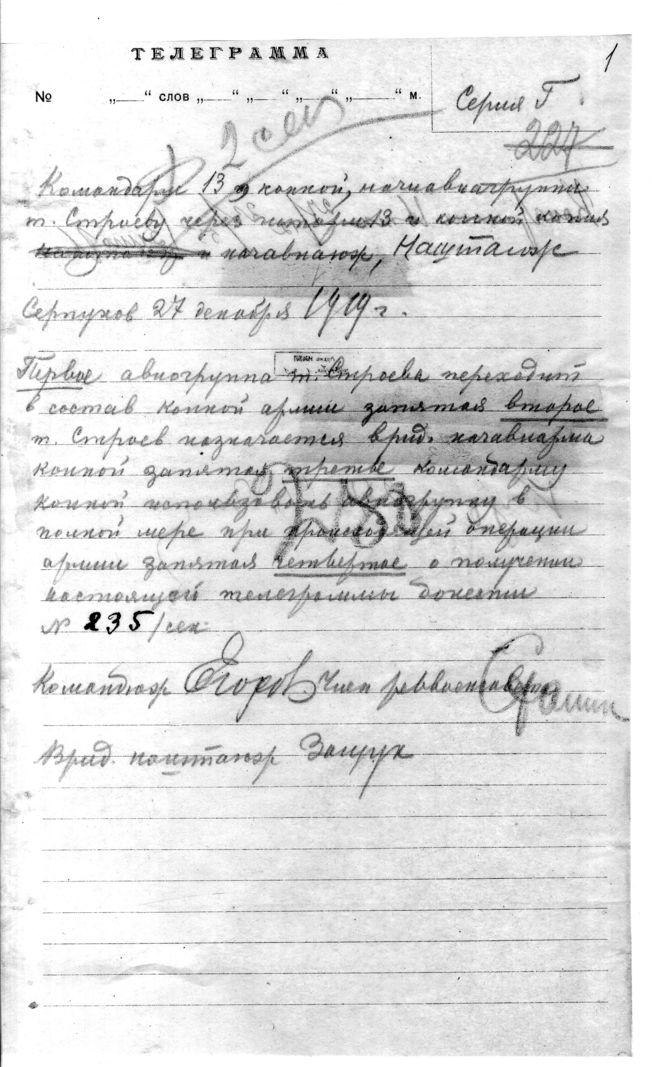 1
ТЕЛЕГРАММА
№ „—“ слов „—“ „—“ „—“ „—“ м.
Серия Г.
227
2 сек
Командарм 13 и конной, начавиагруппы
т. Строеву через наштарм 13 и конной копия
и начавиаюж, Наштаюж
Серпухов 27 декабря 1919 г.
Первое авиагруппа т. Строева переходит
в состав конной армии запятая второе
т. Строев назначается врид. начавиарма
конной запятая третье командарму
конной использовать авиагруппу в
полной мере при происходящей операции
армии запятая четвертое о получении
настоящей телеграммы донести
№ 235/сек.
Командюж Егоров. Член реввоенсовета Сталин
Врид. наштаюж Защук